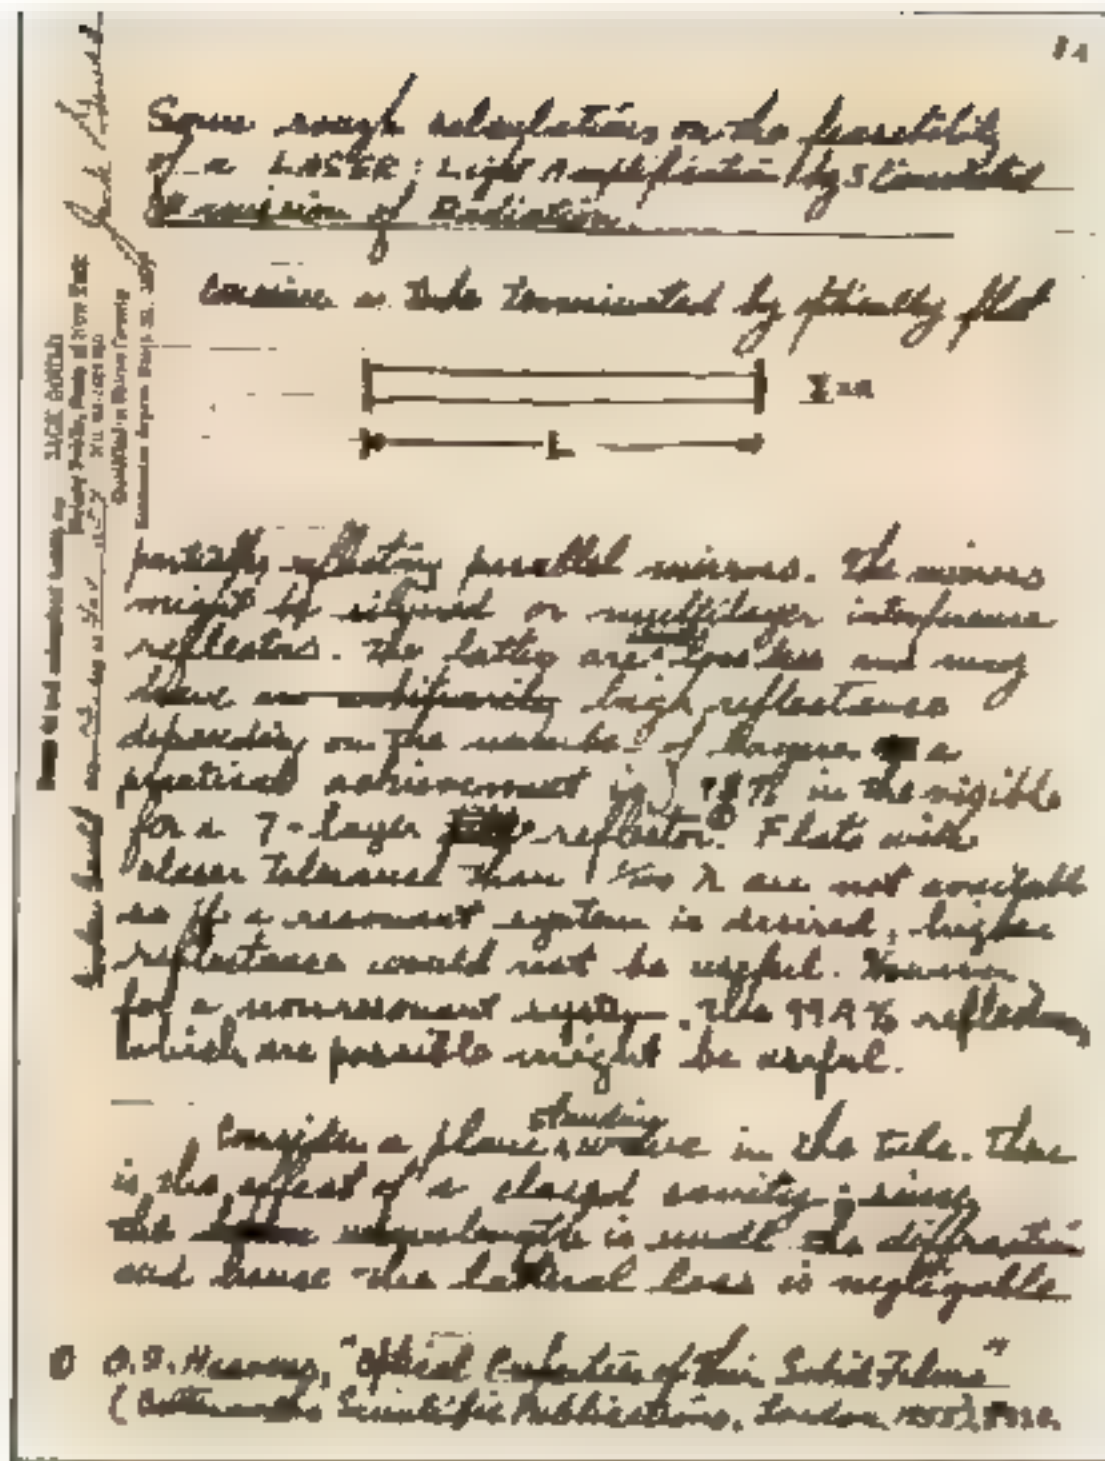 Some rough calculations on the feasibility
of a LASER: Light Amplification by Stimulated
Emission of Radiation
Consider a tube terminated by optically flat
L
partially reflecting parallel mirrors. The mirrors
might be silvered or multilayer interference
reflectors. The latter are loss less and may
have high reflectance
depending on the number of layers. a
practical achievement is 98% in the visible
for a 7-layer reflector. Flats with
closer tolerance than λ are not available
so if a resonant system is desired, higher
reflectance would not be useful. However
for a nonresonant system, the 99.9% reflectors
which are possible might be useful.
Consider a plane standing wave in the tube. There
is the effect of a closed cavity; since
the wavelength is small the diffraction
and hence the lateral loss is negligable
O.S. Heavens, "Optical Properties of Thin Solid Films"
(Butterworths Scientific Publications, London, 1955),
JACK GOULD
Notary Public, State of New York